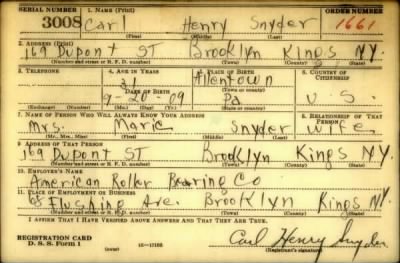 SERIAL NUMBER 1. NAME (Print) ORDER NUMBER
3008 Carl Henry Snyder 1661
(First) (Middle) (Last)
2. ADDRESS (Print)
169 Dupont ST Brooklyn Kings N.Y.
(Number and street or R. F. D. number) (Town) (County) (State)
3. TELEPHONE 4. AGE IN YEARS 5. PLACE OF BIRTH 6. COUNTRY OF CITIZENSHIP
31 Allentown
DATE OF BIRTH (Town or county)
9-26-09 Pa U. S.
(Exchange) (Number) (Mo.) (Day) (Yr.) (State or country)
7. NAME OF PERSON WHO WILL ALWAYS KNOW YOUR ADDRESS 8. RELATIONSHIP OF THAT PERSON
Mrs. Marie Snyder wife
(Mr., Mrs., Miss) (First) (Middle) (Last)
9. ADDRESS OF THAT PERSON
169 Dupont ST Brooklyn Kings N.Y.
(Number and street or R. F. D. number) (Town) (County) (State)
10. EMPLOYER'S NAME
American Roller Bearing Co
11. PLACE OF EMPLOYMENT OR BUSINESS
Flushing Ave. Brooklyn Kings N.Y.
(Number and street or R. F. D. number) (Town) (County) (State)
I AFFIRM THAT I HAVE VERIFIED ABOVE ANSWERS AND THAT THEY ARE TRUE.
REGISTRATION CARD
D. S. S. Form 1 (over) Carl Henry Snyder
(Registrant's signature)